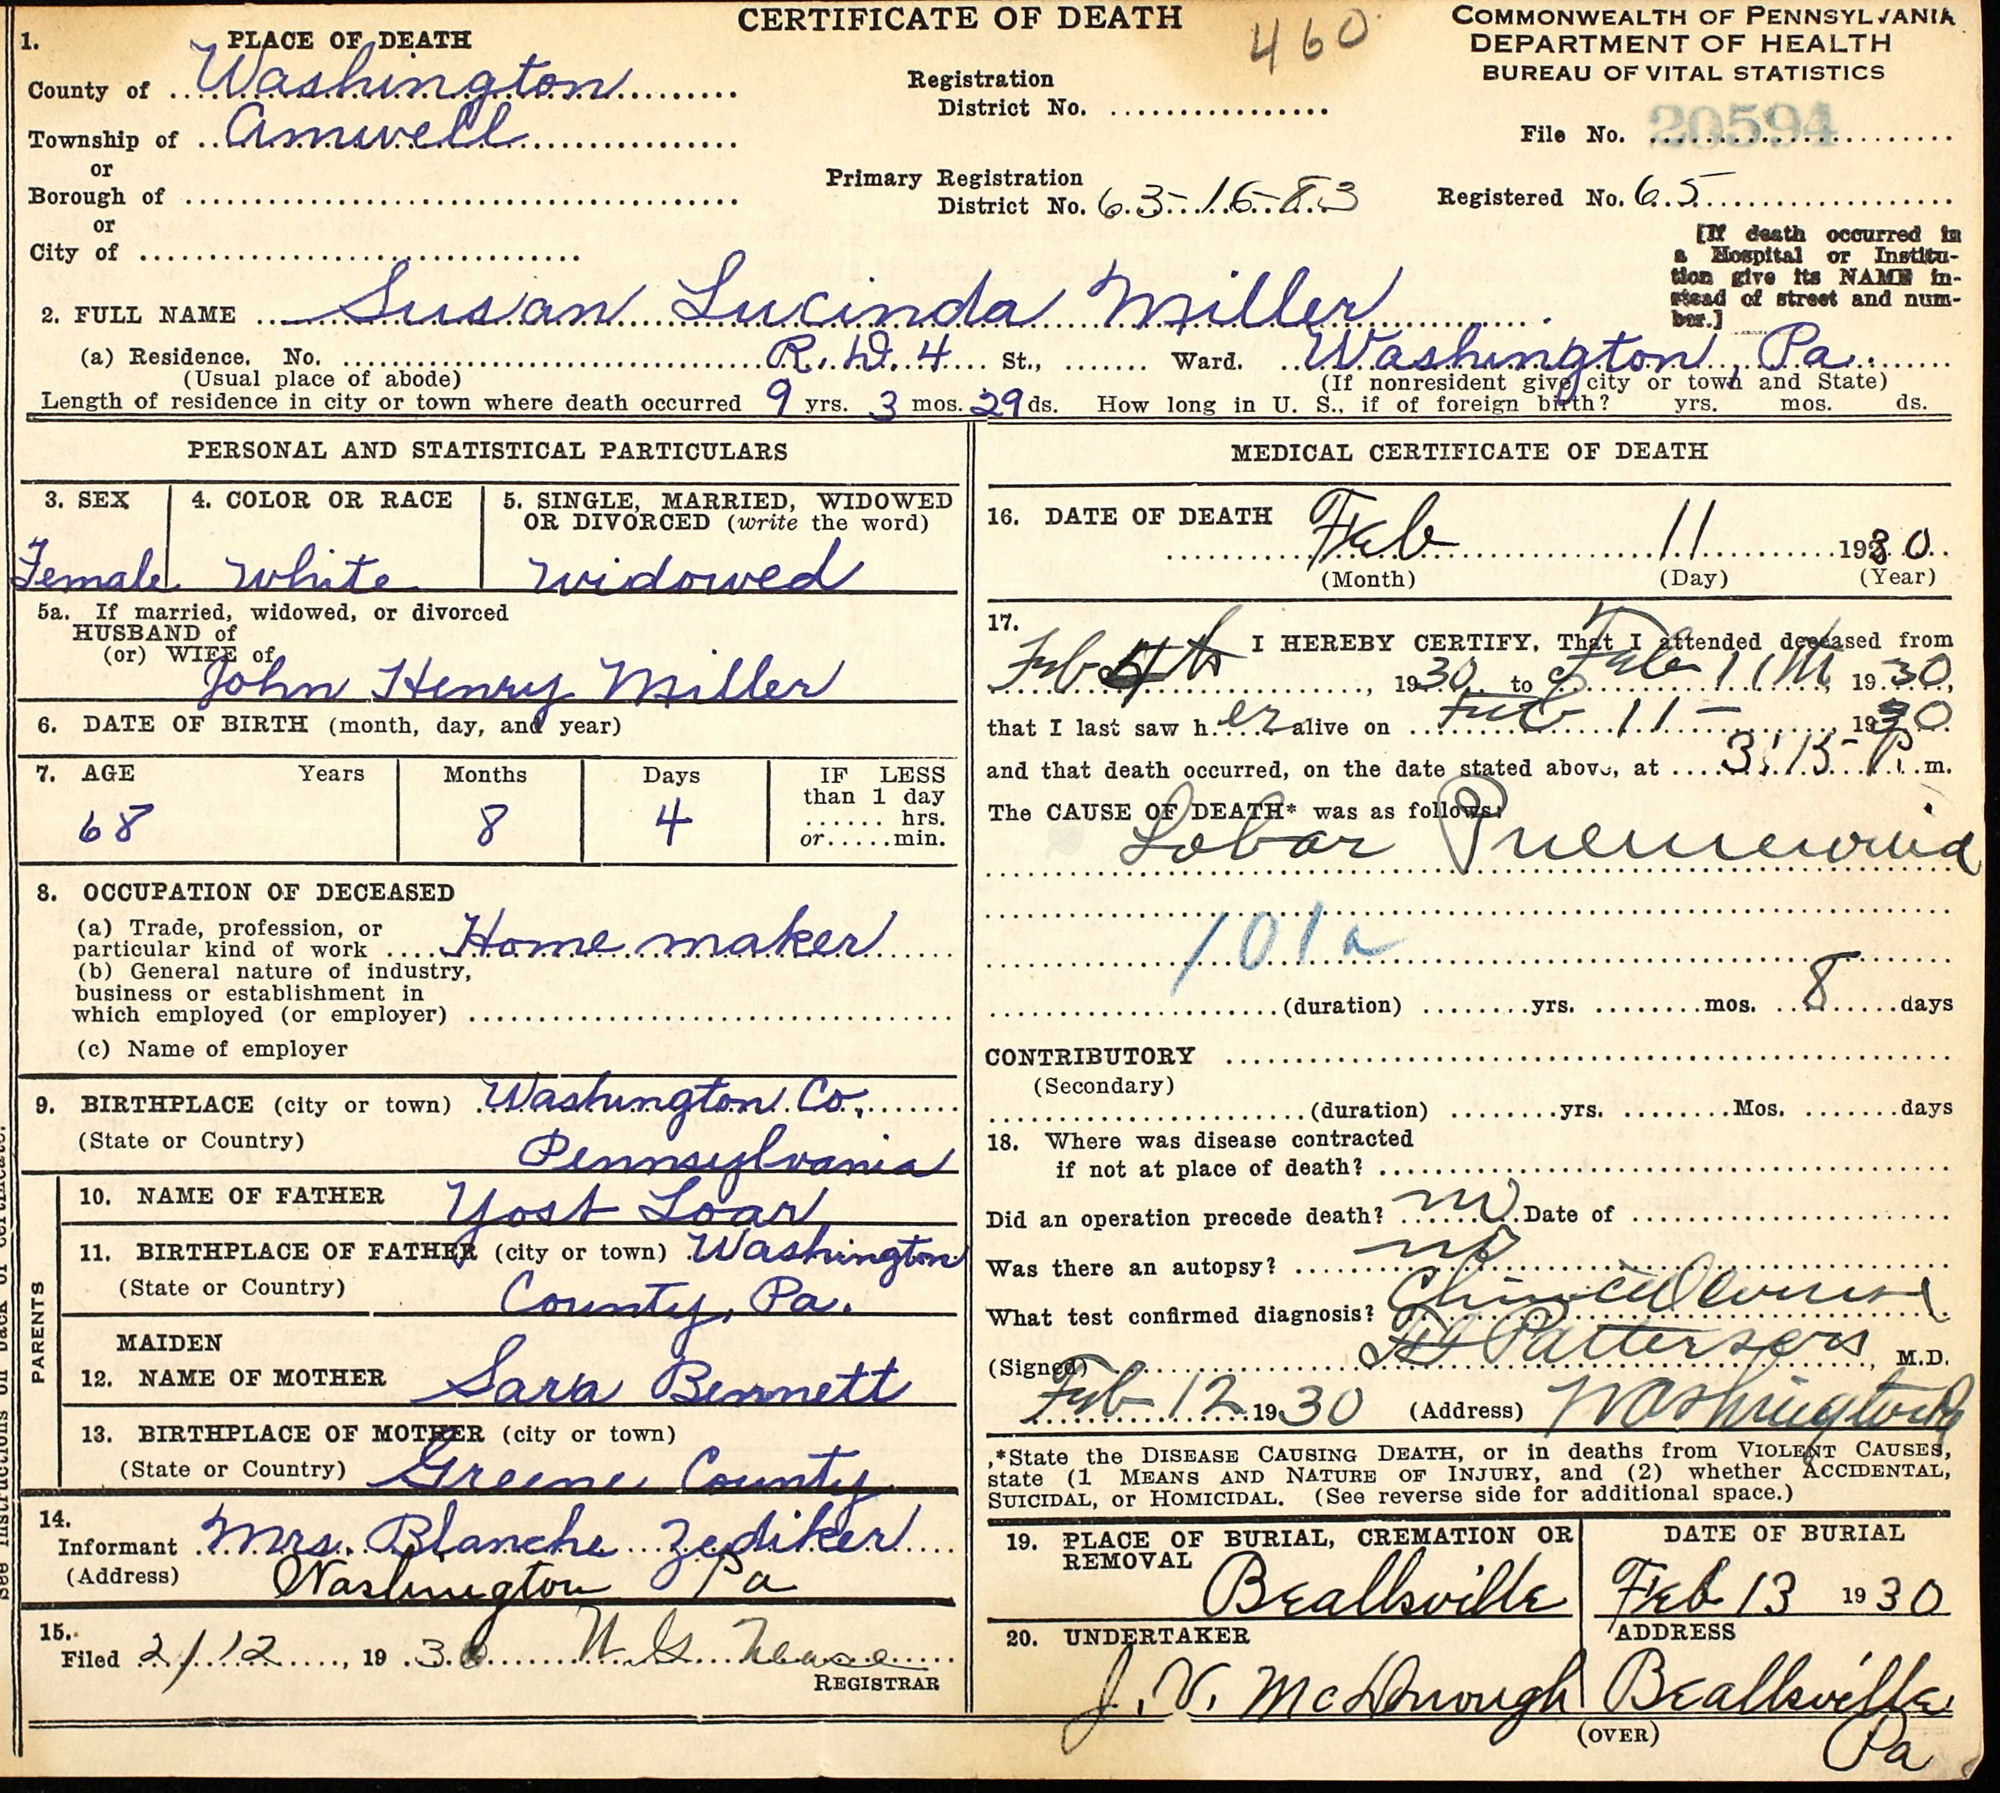 CERTIFICATE OF DEATH
460
COMMONWEALTH OF PENNSYLVANIA
DEPARTMENT OF HEALTH
BUREAU OF VITAL STATISTICS
1. PLACE OF DEATH
County of Washington
Township of Amwell
or
Borough of
or
City of
Registration
District No.
Primary Registration
District No. 63-16-83
File No. 20594
Registered No. 65
[If death occurred in
a Hospital or Institu-
tion give its NAME in-
stead of street and num-
ber.]
2. FULL NAME Susan Lucinda Miller
(a) Residence. No. R.D. 4 St., Ward. Washington, Pa.
(Usual place of abode) (If nonresident give city or town and State)
Length of residence in city or town where death occurred 9 yrs. 3 mos. 29 ds. How long in U. S., if of foreign birth? yrs. mos. ds.
PERSONAL AND STATISTICAL PARTICULARS
3. SEX 4. COLOR OR RACE 5. SINGLE, MARRIED, WIDOWED
OR DIVORCED (write the word)
Female White Widowed
5a. If married, widowed, or divorced
HUSBAND of
(or) WIFE of
John Henry Miller
6. DATE OF BIRTH (month, day, and year)
7. AGE Years Months Days IF LESS
than 1 day
hrs.
or min.
68 8 4
8. OCCUPATION OF DECEASED
(a) Trade, profession, or
particular kind of work Home maker
(b) General nature of industry,
business or establishment in
which employed (or employer)
(c) Name of employer
9. BIRTHPLACE (city or town) Washington Co.,
(State or Country) Pennsylvania
PARENTS
10. NAME OF FATHER Yost Loar
11. BIRTHPLACE OF FATHER (city or town) Washington
(State or Country) County, Pa.
MAIDEN
12. NAME OF MOTHER Sara Bennett
13. BIRTHPLACE OF MOTHER (city or town)
(State or Country) Greene County
14.
Informant Mrs. Blanche Zediker
(Address) Washington Pa
15.
Filed 2/12, 1930 N. G.
REGISTRAR
See instructions on back of certificate.
MEDICAL CERTIFICATE OF DEATH
16. DATE OF DEATH Feb 11 1930
(Month) (Day) (Year)
17.
I HEREBY CERTIFY, That I attended deceased from
Feb 4th, 1930 to Feb 11th, 1930,
that I last saw her alive on Feb 11-, 1930
and that death occurred, on the date stated above, at 3:15- P. m.
The CAUSE OF DEATH* was as follows:
Lobar Pneumonia
101a
(duration) yrs. mos. 8 days
CONTRIBUTORY
(Secondary)
(duration) yrs. Mos. days
18. Where was disease contracted
if not at place of death?
Did an operation precede death? no Date of
Was there an autopsy? no
What test confirmed diagnosis?
(Signed) Patterson, M.D.
Feb 12 1930 (Address) Washington Pa
*State the DISEASE CAUSING DEATH, or in deaths from VIOLENT CAUSES,
state (1 MEANS AND NATURE OF INJURY, and (2) whether ACCIDENTAL,
SUICIDAL, or HOMICIDAL. (See reverse side for additional space.)
19. PLACE OF BURIAL, CREMATION OR
REMOVAL
Beallsville
DATE OF BURIAL
Feb 13 1930
20. UNDERTAKER
J. V. McDonough
ADDRESS
Beallsville
Pa
(OVER)